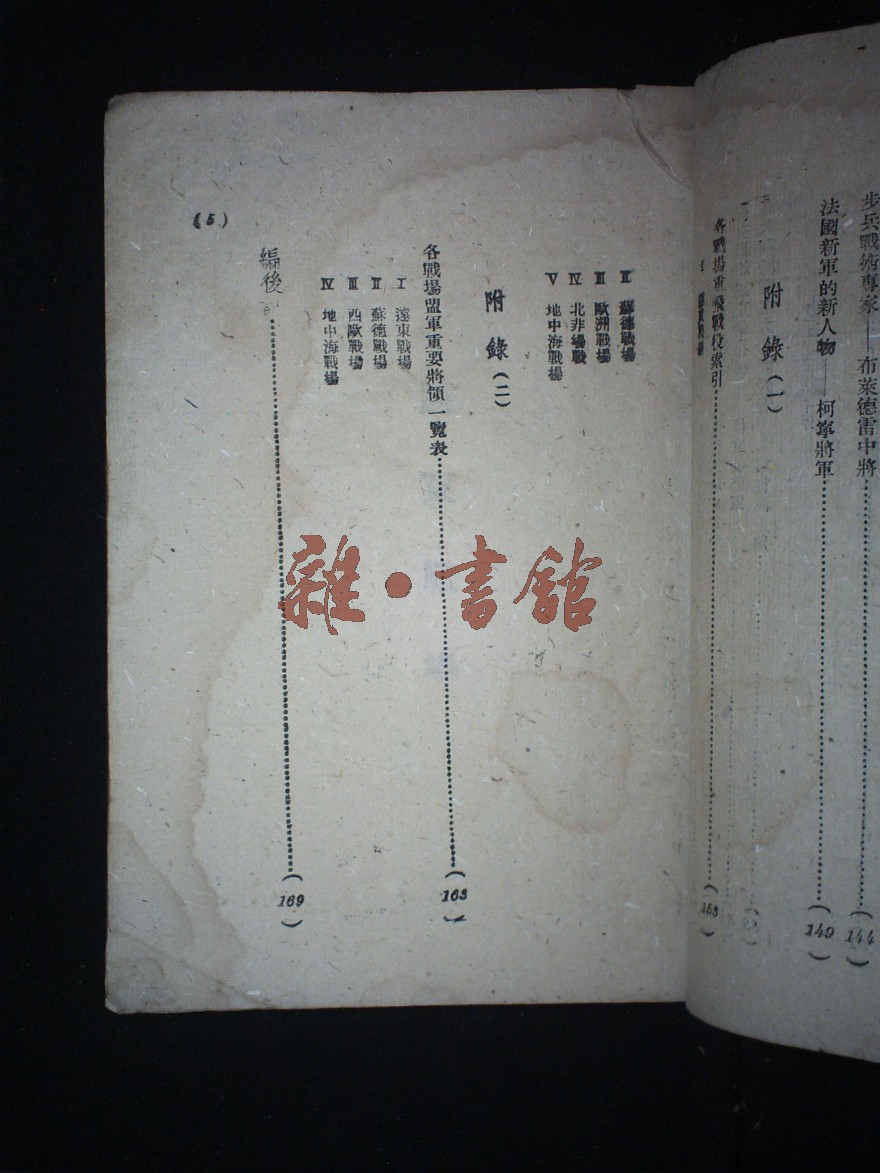 步兵戰術專家——布萊德雷中將………(144)
法國新軍的新人物——柯寧將軍………(149)
附錄(一)
各戰場重 戰役索引………(153)
I
II 蘇德戰場
III 歐洲戰場
IV 北非場戰
V 地中海戰場
附錄(二)
各戰場盟軍重要將領一覽表………(163)
I 遠東戰場
II 蘇德戰場
III 西歐戰場
IV 地中海戰場
編後………(169)
(5)
雜·書館